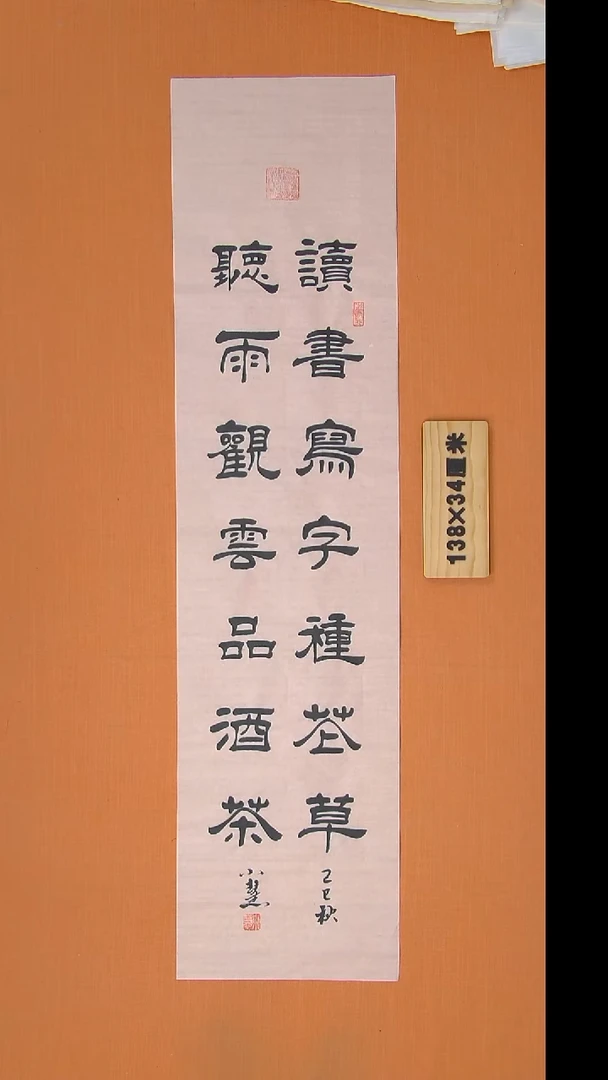 讀書寫字種花草
乙巳秋
聽雨觀雲品酒茶
138×34厘米